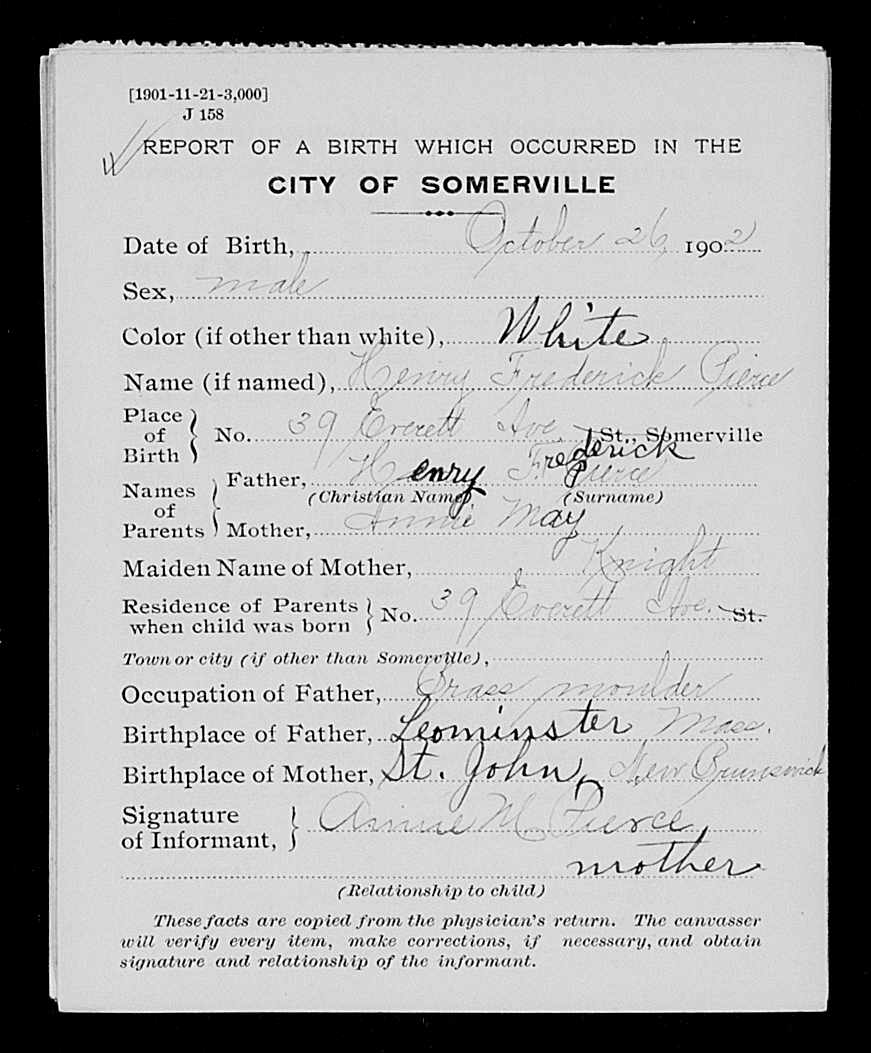 [1901-11-21-3,000]
J 158
REPORT OF A BIRTH WHICH OCCURRED IN THE
CITY OF SOMERVILLE
Date of Birth, October 26, 1902
Sex, male
Color (if other than white), White
Name (if named), Henry Frederick Pierce
Place of Birth } No. 39 Everett Ave. St., Somerville
Names of Parents { Father, Henry Frederick Pierce
(Christian Name) (Surname)
Mother, Annie May
Maiden Name of Mother, Knight
Residence of Parents when child was born } No. 39 Everett Ave. St.
Town or city (if other than Somerville),
Occupation of Father, Brass moulder
Birthplace of Father, Leominster Mass.
Birthplace of Mother, St. John, New Brunswick
Signature of Informant, } Annie M. Pierce,
mother
(Relationship to child)
These facts are copied from the physician's return. The canvasser
will verify every item, make corrections, if necessary, and obtain
signature and relationship of the informant.